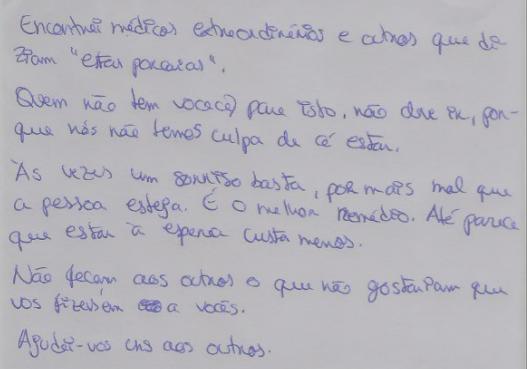 Encontrei médicos extraordinários e outros que di
ziam "estas porcarias".
Quem não tem vocacação para isto, não deve ir, por-
que nós não temos culpa de cá estar.
Às vezes um sorriso basta, por mais mal que
a pessoa esteja. É o melhor remédio. Até parece
que estar à espera custa menos.
Não façam aos outros o que não gostariam que
vos fizessem a vocês.
Ajudai-vos uns aos outros.